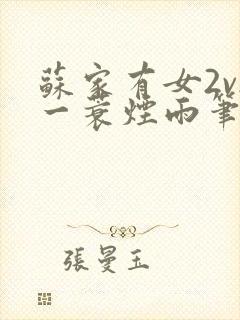 蘇家有女2v
一蓑煙雨筆
張曼玉